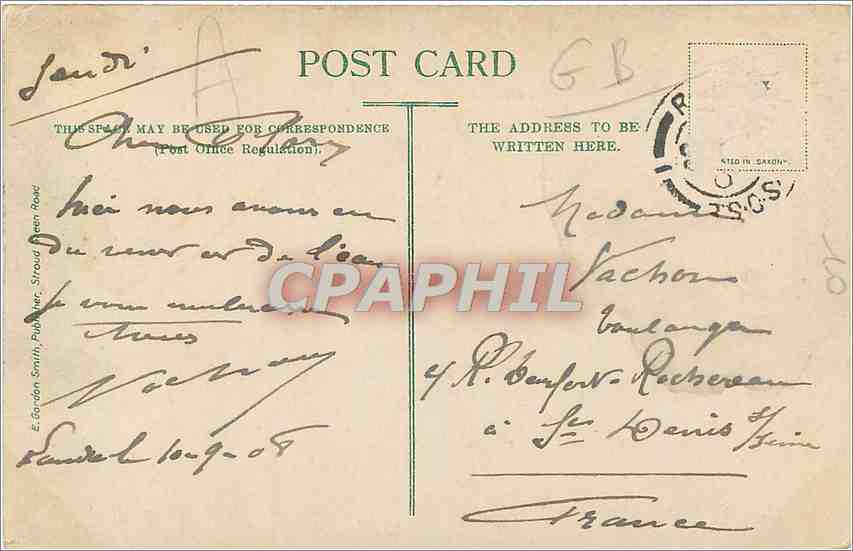 Jeudi
A
GB
POST CARD
THIS SPACE MAY BE USED FOR CORRESPONDENCE
(Post Office Regulation).
THE ADDRESS TO BE
WRITTEN HERE.
TED IN SAXONY.
S.O.
hier nous avons eu
du vent et de l'eau
Je vous embrasse
tous
Vachon
10-9-08
E. Gordon Smith, Publisher, Stroud Green Road
Madame
Vachon
boulanger
4 R. Denfert-Rochereau
à St Denis s/Seine
France
10
CPAPHIL